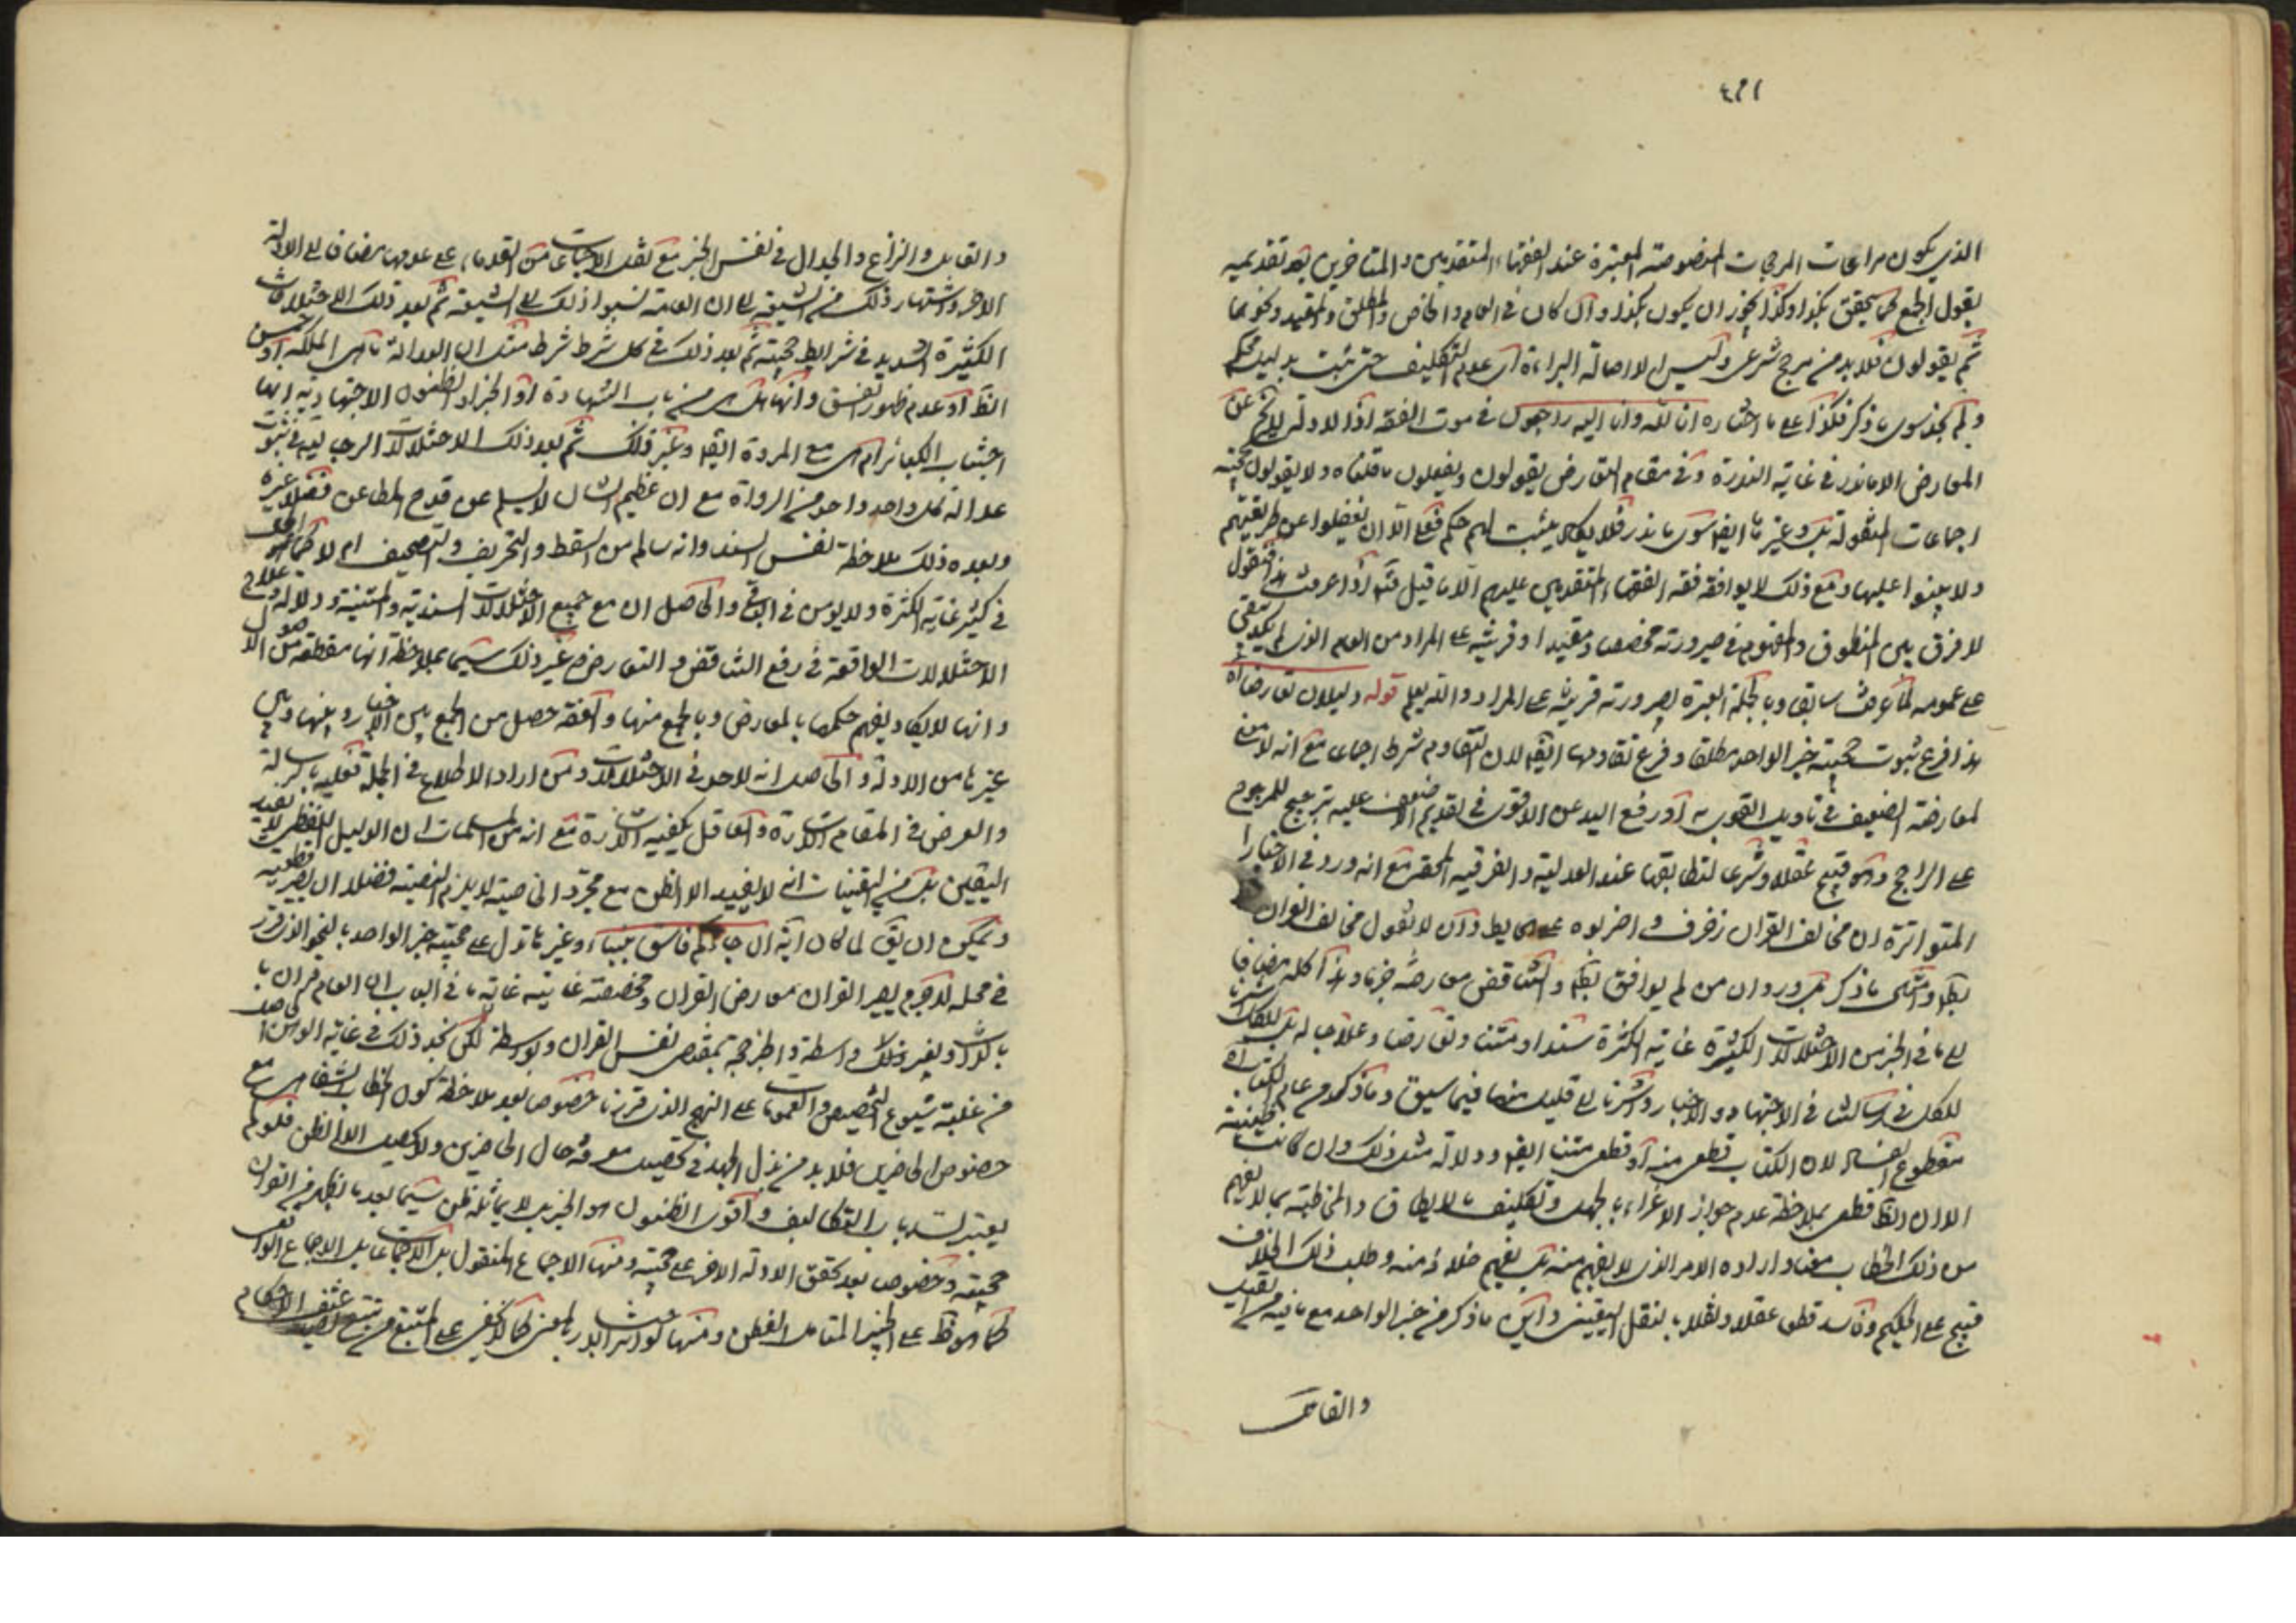 الذي يكون مراعات المرجحات المنصوصة المعتبرة عند الفقهاء المتقدمين والمتاخرين بعد تقديمه
يقول الجمع كما يتحقق بكذا وكذا يجوز ان يكون بكذا وان كان في العام والخاص والمطلق والمقيد ونحوهما
ثم يقولون فلا بد من مرجح شرعي وليس الا لاصالة البراءة اى عدم التكليف حتى يثبت بدليل محكم
ولم نجد سوى ما ذكر فكذا على ما اختاره انا لله وانا اليه راجعون في موت الفقه اذ الادلة عن
المعارض الا ما نذر في غاية الندرة وفي مقام التعارض يقولون ويفعلون ما قلناه ولا يقولون بحجية
اجماعات المنقولة بل وغيرها ايضا سوى ما نذر فلا يكاد يثبت لهم حكم فقهى الا ان يغفلوا عن طريقتهم
ولا يبنوا عليها ومع ذلك لا يوافقه فقه الفقهاء المتقدمين عليهم الا ما قيل ثم اذا عرفت هذا فنقول
لا فرق بين المنطوق والمفهوم في صيرورته مخصصا ومقيدا او قرينة على المراد من العام الذى لم يبق
على عمومه لما عرفت سابقا وبالجملة العبرة بصيرورته قرينة على المراد والله يعلم قوله دليلان تعارضا اه
هذا فرع ثبوت حجية خبر الواحد مطلقا وفرع تقاومها ايضا لان التقاوم شرط اجماعى مع انه لا معنى
لمعارضة الضعيف في تاويل القوى به او رفع اليد عن الاقوى في تقديم الاضعف عليه ترجيح للمرجوح
على الراجح وانه قبيح عقلا وشرعا لتطابقهما عند العدلية والفرقة المحقة مع انه ورد في الاخبار
المتواترة ان مخالف القران زخرف واضربوه على الحايط وان لا نقول مخالف القران
ما ذكر ورد ان من لم يوافق والتناقض معارضه خبرنا وهذا كله مضافا
الى ما في الخبر من الاختلالات الكثيرة غاية الكثرة سندا ومتنا وتعارضا وعلاجا له
للكل في رسالتنا في الاجتهاد والاخبار واشرنا الى قليل منها فيما سبق وما ذكروه من عام الكتاب اه
مقطوع لان الكتاب قطعى منه او قطعى متنا ايضا ودلالة مثل ذلك وان كانت ظنية
الا ان الظ قطعى بملاحظة عدم جواز الاغراء بالجهل وتكليف ما لا يطاق والمخاطبة بما لا يفهم
من ذلك الخطاب معناه وارادة الامر الذى لا يفهم منه بل يفهم خلافه منه وطلب ذلك الخلاف
قبيح على الحكيم وفاسد قطعا عقلا ونقلا بالنقل اليقينى واين ما ذكر من خبر الواحد مع ما فيه من
والقايل
والقايل والنزاع والجدال في نفس الخبر مع نقل الاجماعات من القدماء على عدمها مضافا الى الادلة
الاخر واشتهار ذلك من الشيعة الى ان العامة نسبوا ذلك الى الشيعة ثم بعد ذلك الاختلافات
الكثيرة الشديدة في شرايط حجيته ثم بعد ذلك في كل شرط شرط مثل ان العدالة ما هى الملكة او حسن
الظ او عدم ظهور الفسق وانها هل هى من باب الشهادة او الخبر او الظنون الاجتهادية انها
اجتناب الكباير ام هى مع المروة ايضا وغير ذلك ثم بعد ذلك الاختلالات الرجالية في ثبوت
عدالة كل واحد واحد من الرواة مع ان عظيم الشان لا يسلم عن قدح المطاعن فضلا عن غيره
وبعد ذلك ملاحظة نفس السند وانه سالم من السقط والتحريف والتصحيف ام لا كما هو الحال
في كثير غاية الكثرة ولا يؤمن في الباقي والحاصل ان مع جميع الاختلالات السندية والمتنية ودلالة وعلاج
الاختلالات الواقعة في رفع التناقض والتعارض وغير ذلك سيما بملاحظة انها مقطعة من الاصول
وانها لا يكاد يفهم حكمها بالمعارض وبالجمع منها والفقه حصل من الجمع بين الاخبار وبينها وبين
غيرها من الادلة والحاصل انه لا حد في الاختلالات ومن اراد الاطلاع في الجملة فعليه بالرسالة
والغرض في المقام الاشارة والعاقل يكفيه الاشارة مع انه من المسلمات ان الدليل اللفظى لا يفيد
اليقين بل من اليقينيات انه لا يفيد الا الظن مع مجرد الخاصية لا يلزم النصية فضلا ان يصير قطعية
ويمكن ان يق لما كان آية ان جاءكم فاسق بنبأ وغيرها تدل على حجية خبر الواحد بالنحو الذى قرر
في محله لا جرم يصير القران معارض القران ومخصصه غايته ما في الباب ان العام قران
بالذات وبغير واسطة والحجة بمقتضى نفس القران وبواسطة لكن نجد ذلك في غاية الوهن
من غلبة شيوع التخصيص والعمومات على النهج الذى قررنا خصوصا بعد ملاحظة كون الخطاب الشفاهى مع
خصوص الحاضرين فلا بد من بذل الجهد في تحصيل معرفة حال الحاضرين ولا يحصل الا الظن فلو لم
يعتبر لسد باب التكاليف واقوى الظنون هو الخبر بل لا يماثله ظن سيما بعد ما يظهر من القران
حجيته وخصوصا بعد تحقق الادلة الاخر على حجيته ومنها الاجماع المنقول بل الاجماعات بل الاجماع الواقعى
كما هو ظ على الخبير المتامل الفطن ومنها كما لا يخفى على المتتبع